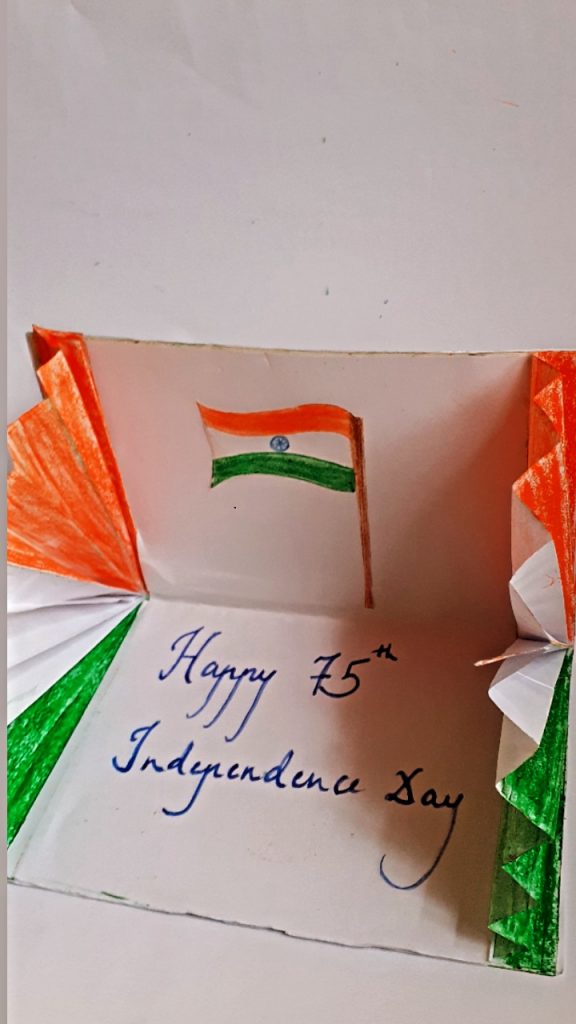 Happy 75th
Independence Day